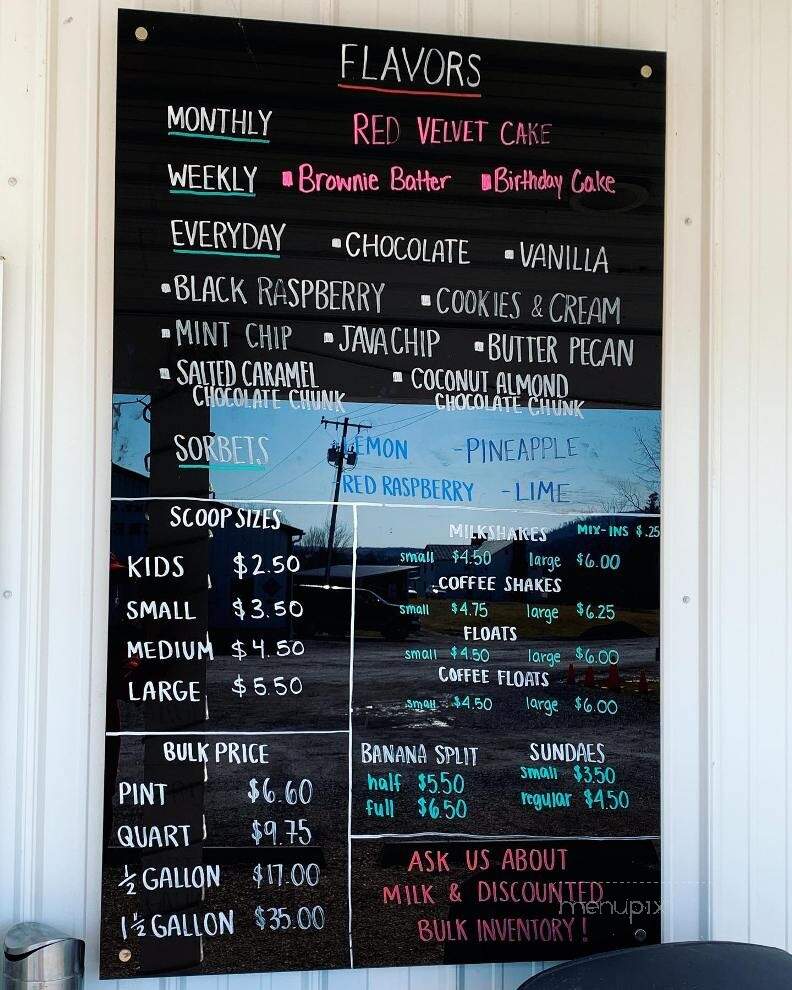 FLAVORS
MONTHLY RED VELVET CAKE
WEEKLY ▪Brownie Batter ▪Birthday Cake
EVERYDAY ▪CHOCOLATE ▪VANILLA
▪BLACK RASPBERRY ▪COOKIES & CREAM
▪MINT CHIP ▪JAVA CHIP ▪BUTTER PECAN
▪SALTED CARAMEL ▪COCONUT ALMOND
CHOCOLATE CHUNK CHOCOLATE CHUNK
SORBETS LEMON -PINEAPPLE
RED RASPBERRY -LIME
SCOOP SIZES
KIDS $2.50
SMALL $3.50
MEDIUM $4.50
LARGE $5.50
MILKSHAKES MIX-INS $.25
small $4.50 large $6.00
COFFEE SHAKES
small $4.75 large $6.25
FLOATS
small $4.50 large $6.00
COFFEE FLOATS
small $4.50 large $6.00
BULK PRICE
PINT $6.60
QUART $9.75
½ GALLON $17.00
1½ GALLON $35.00
BANANA SPLIT
half $5.50
full $6.50
SUNDAES
small $3.50
regular $4.50
ASK US ABOUT
MILK & DISCOUNTED
BULK INVENTORY!
menupix